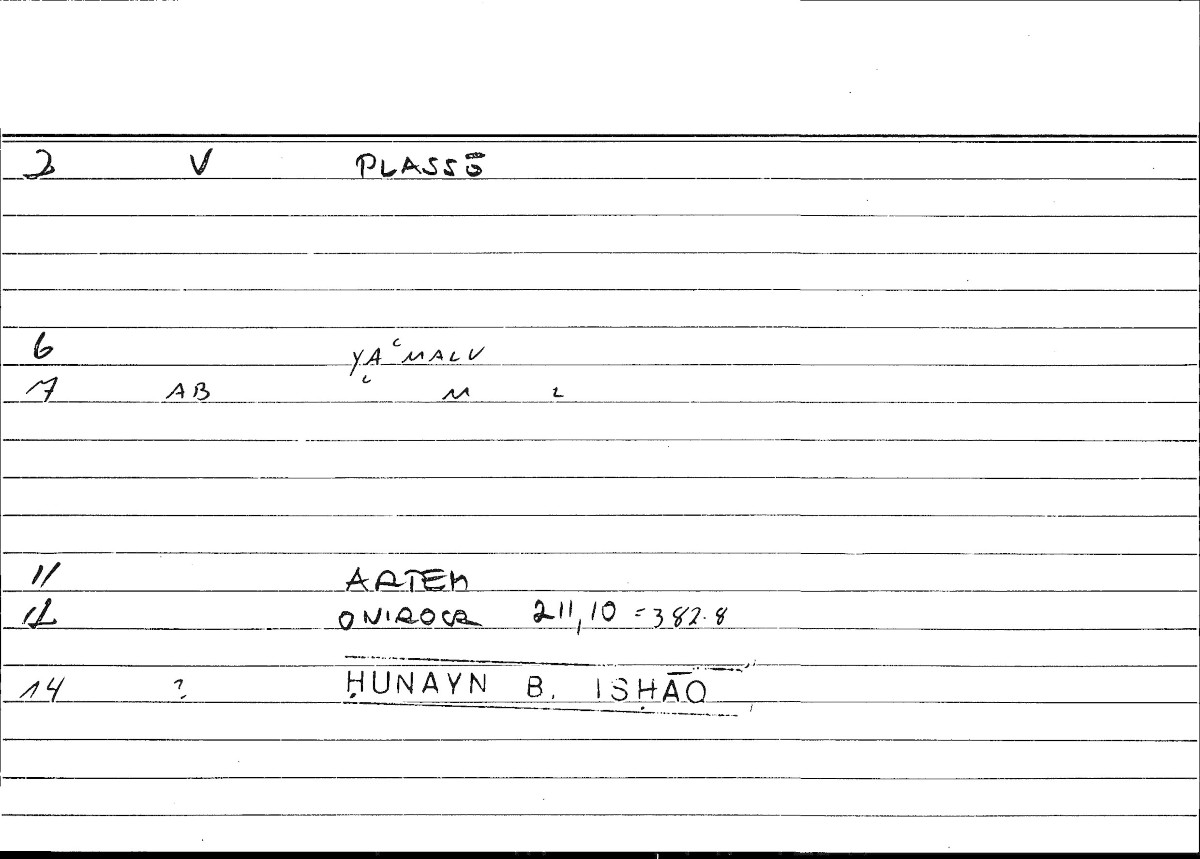 2 V PLASSŌ
6 YAʿMALU
7 AB ʿ M L
11 ARTEM
12 ONIROCR 211,10 = 382.8
14 ? ḤUNAYN B. ISḤĀQ